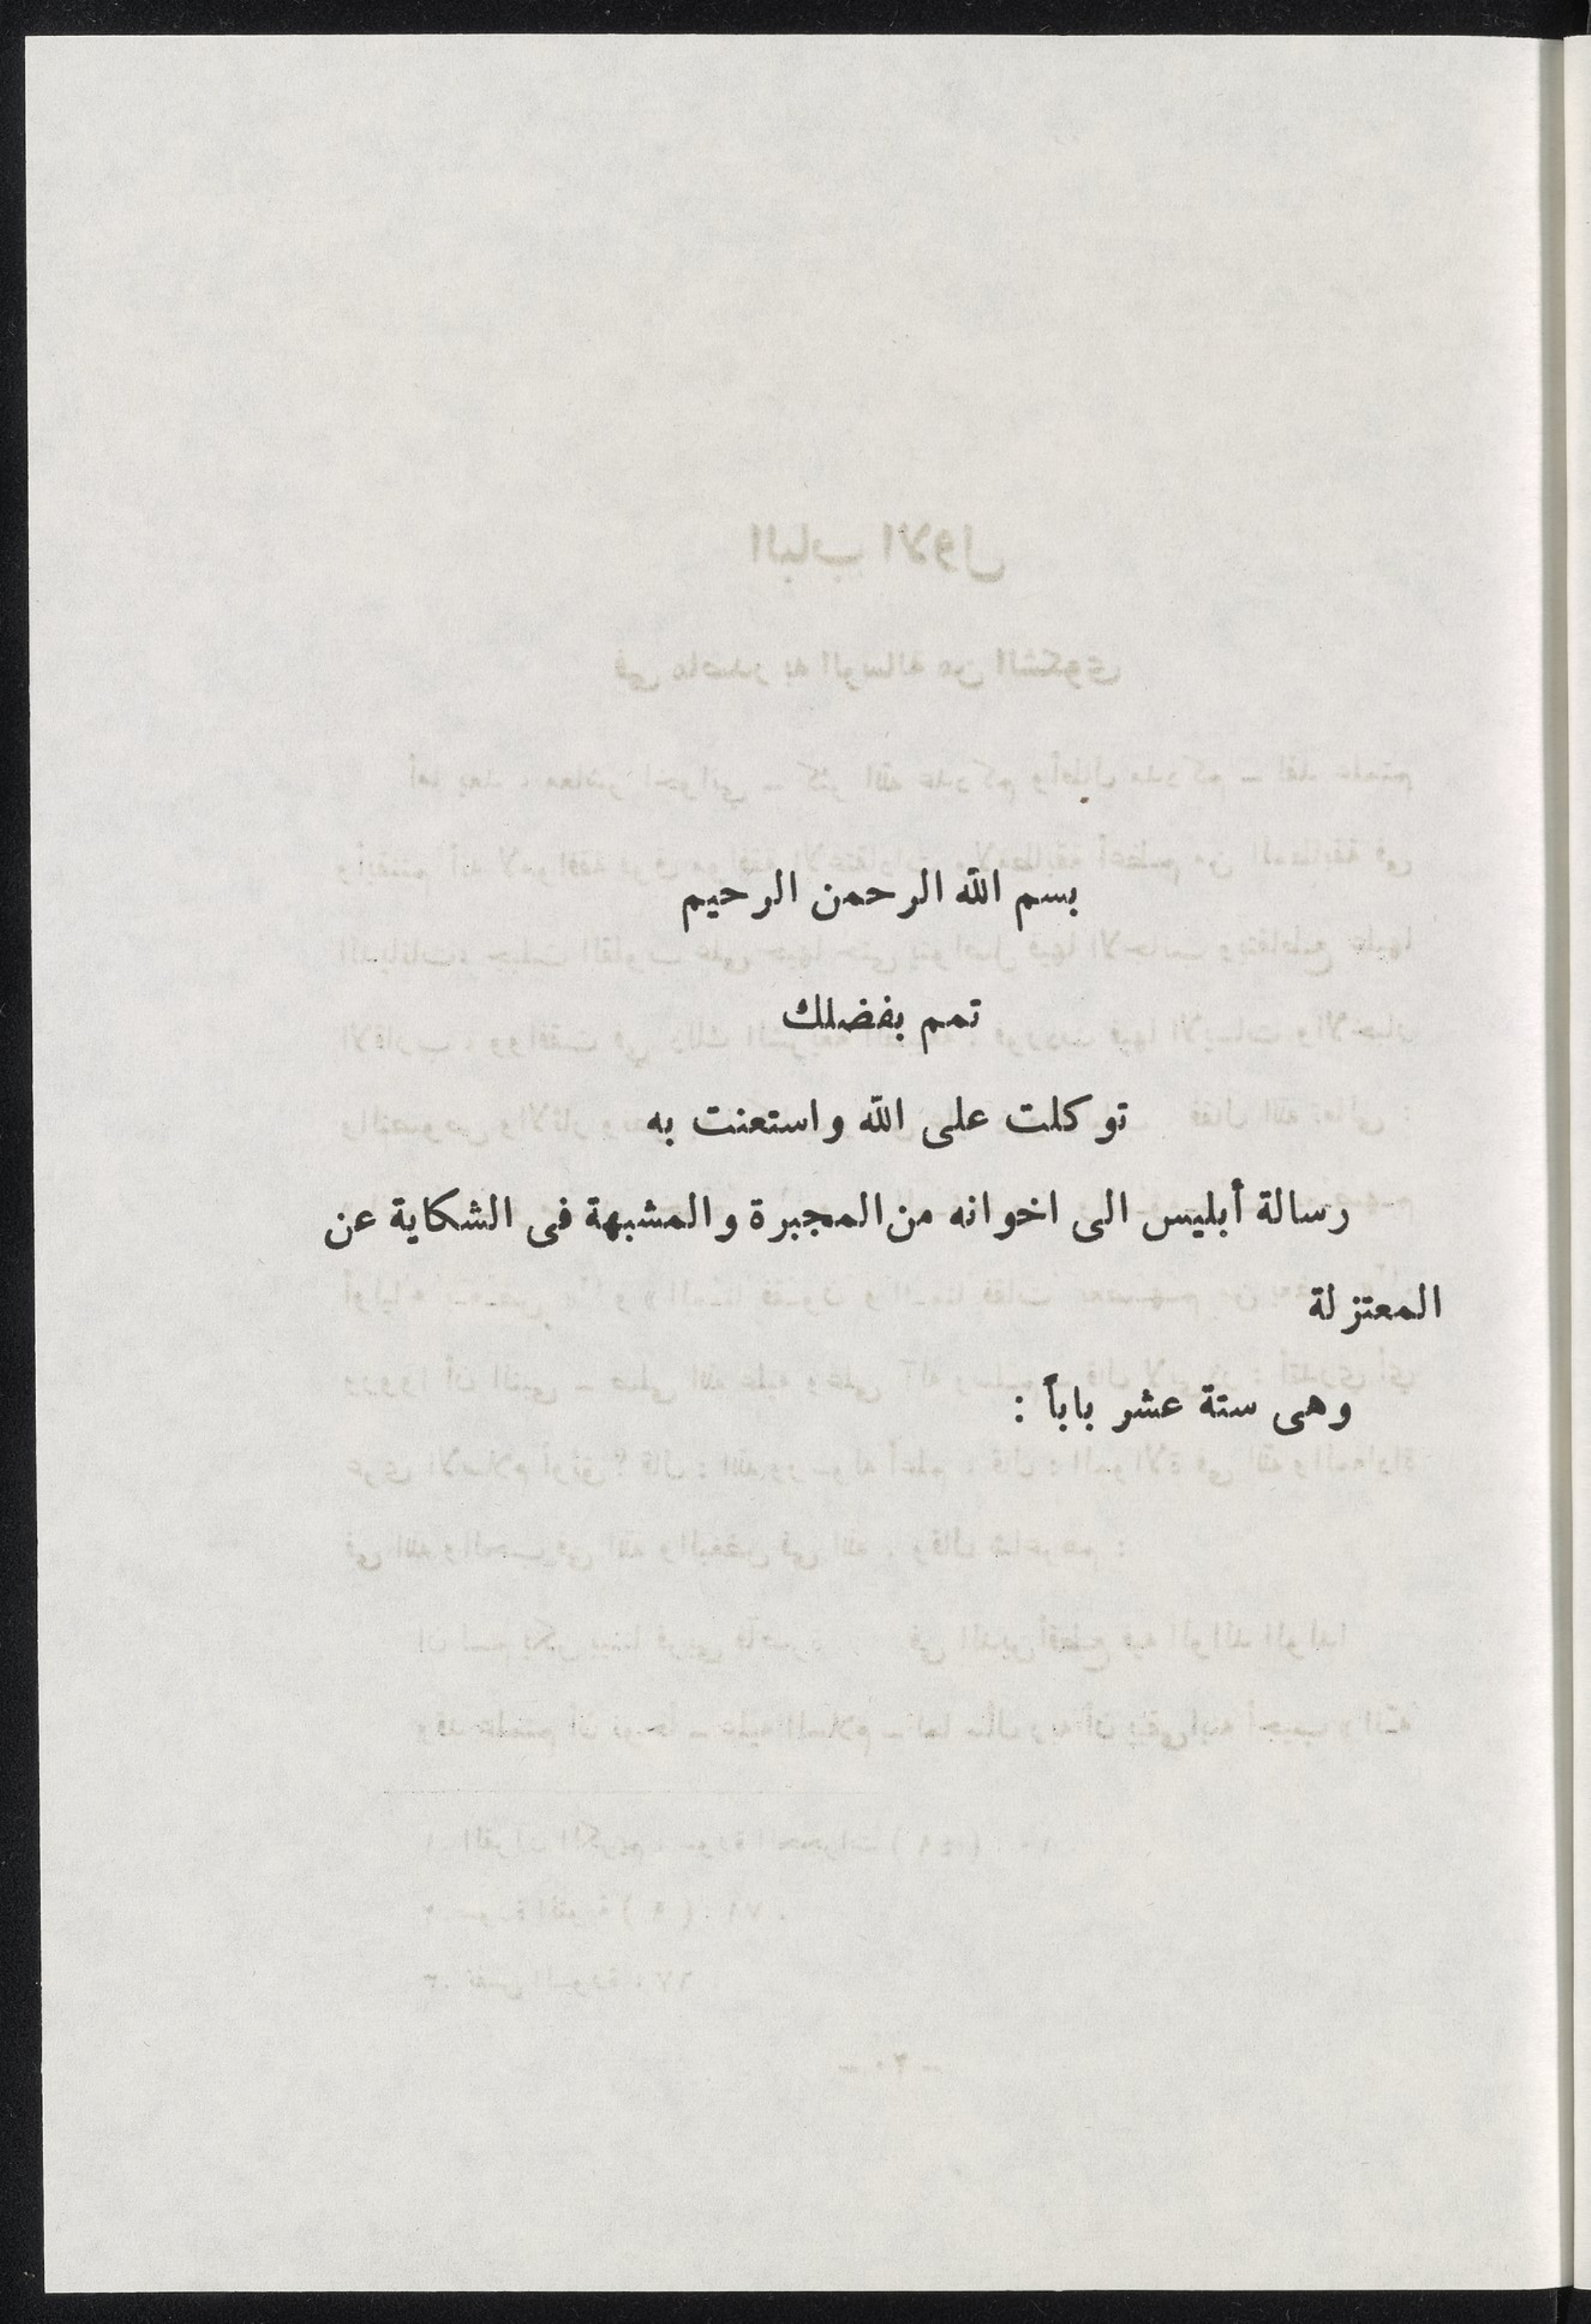 بسم الله الرحمن الرحيم
تمم بفضلك
توكلت على الله واستعنت به
رسالة أبليس الى اخوانه من المجبرة والمشبهة فى الشكاية عن
المعتزلة
وهى ستة عشر باباً :